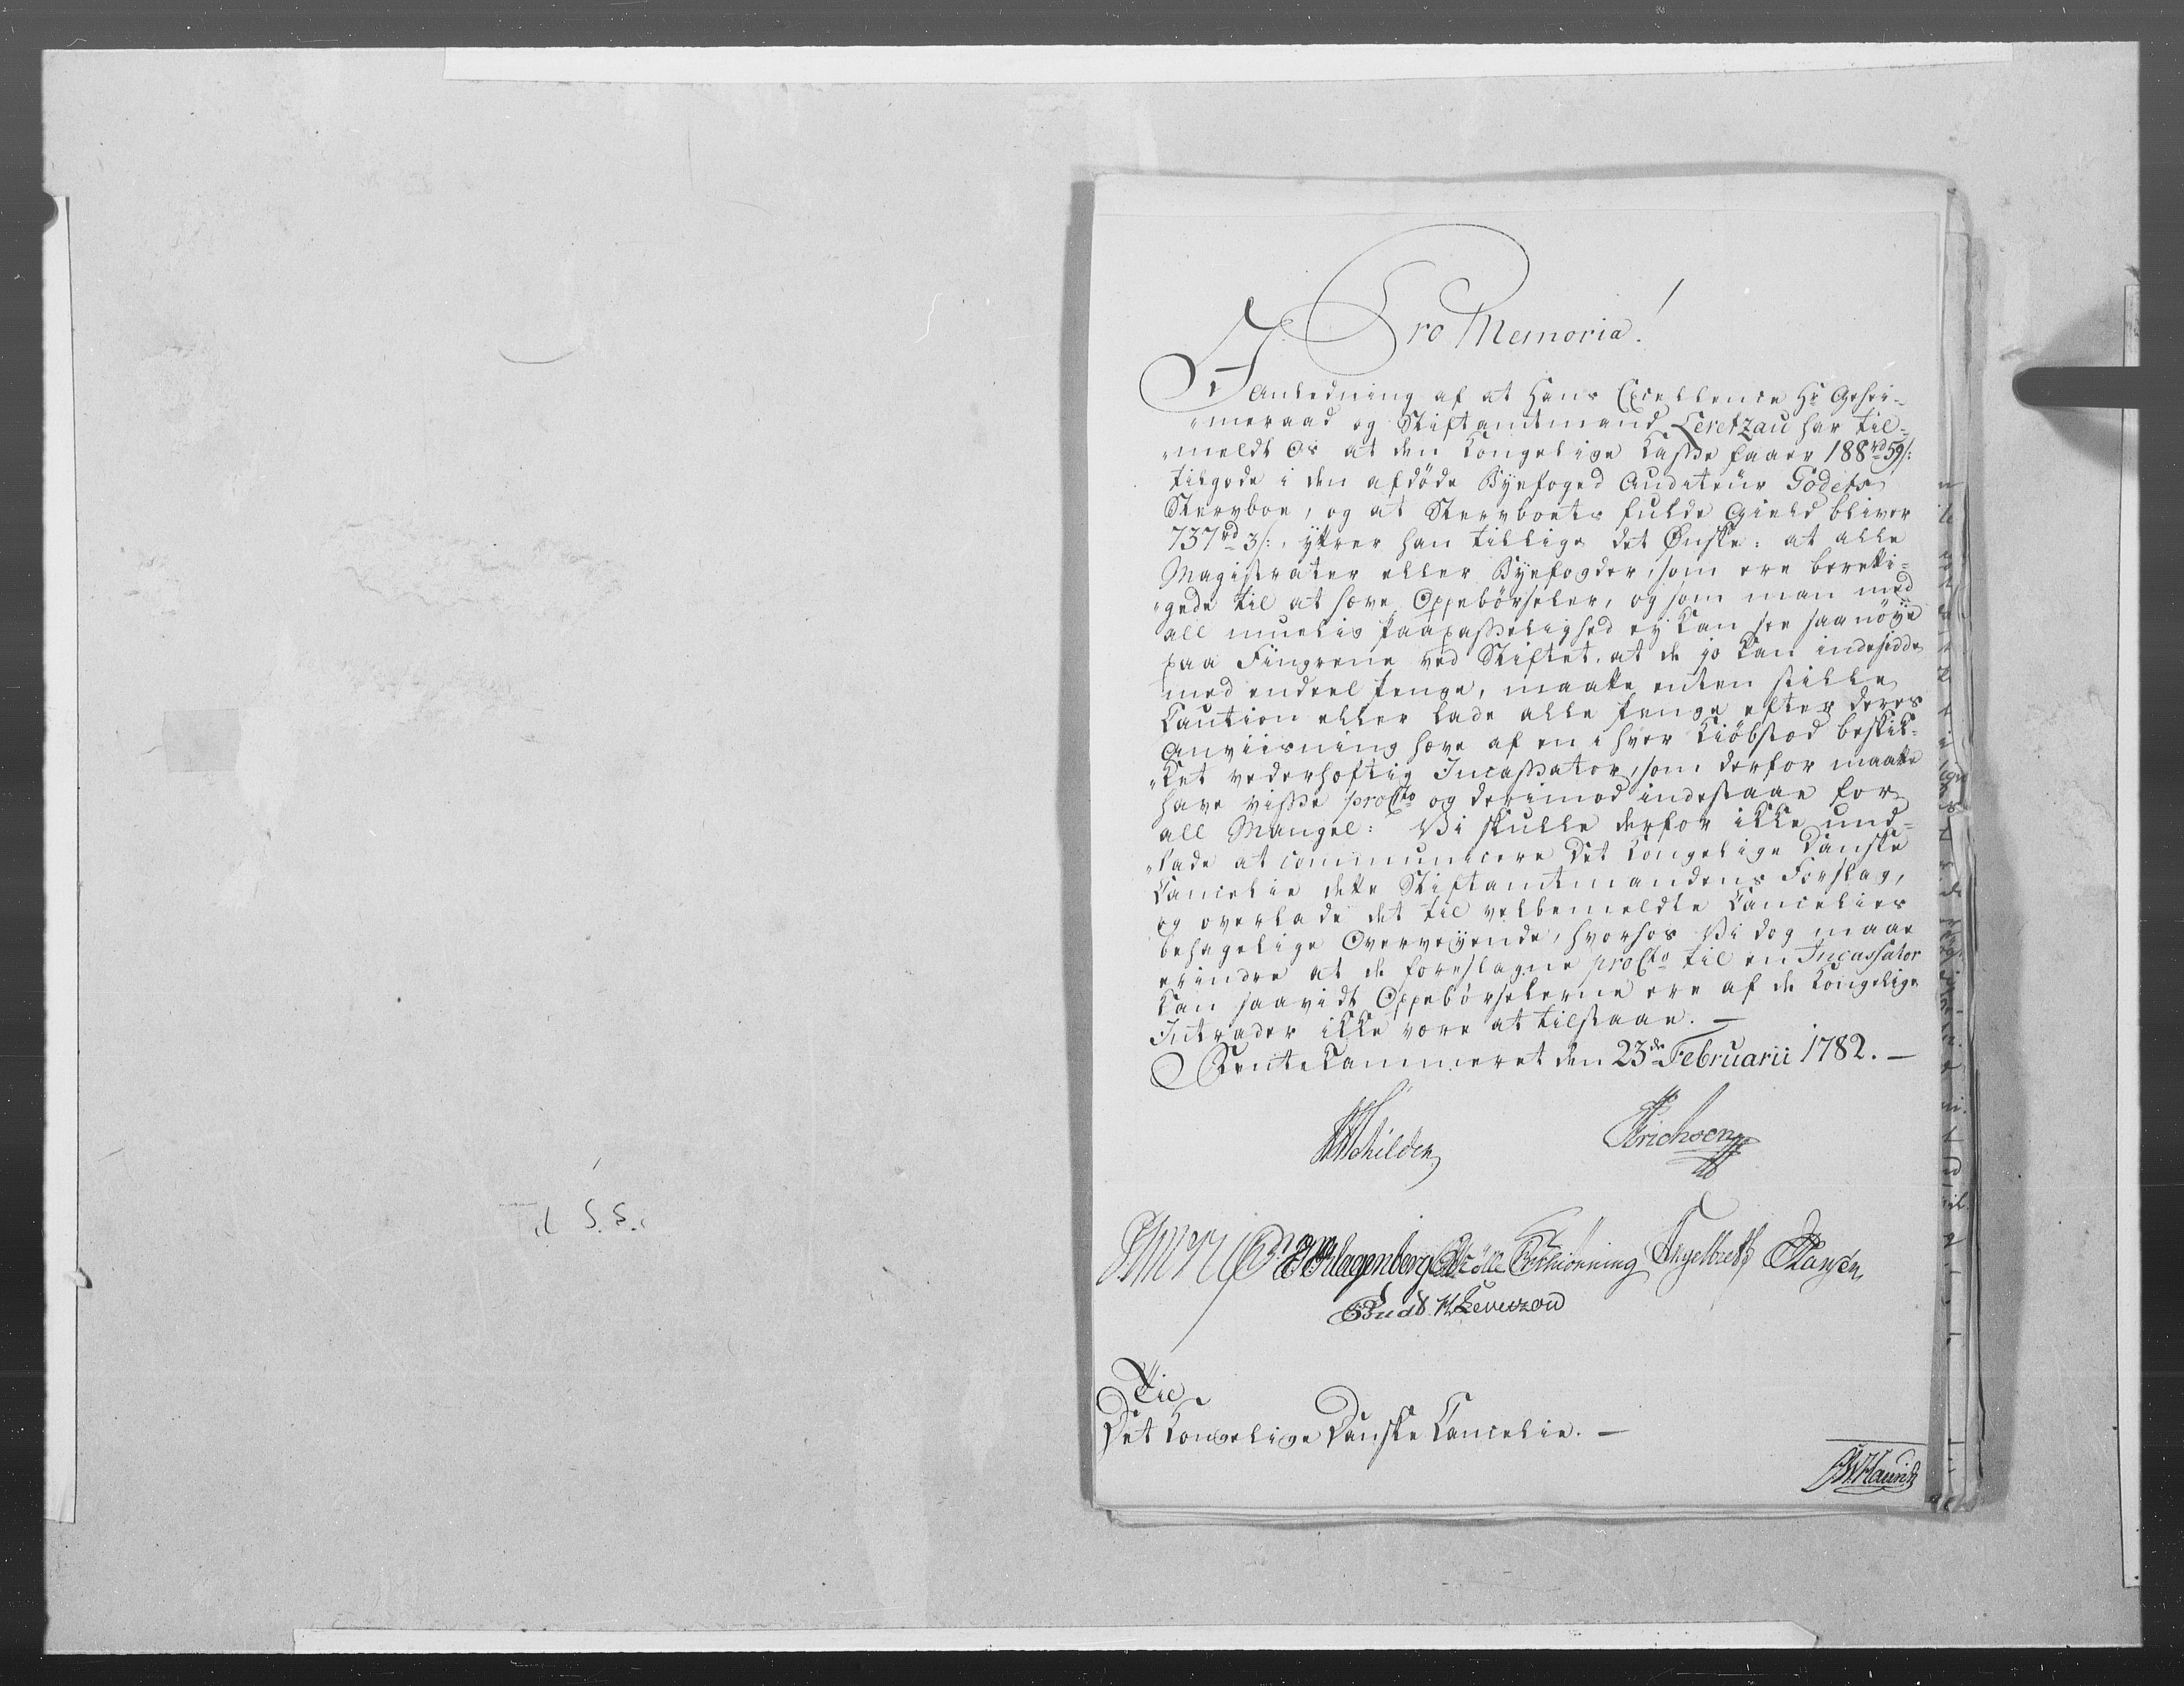 Pro Memoria!
I Anledning af at Hans Excellence Hr Gehei-
meraad og Stiftamtmand Levetzau har til-
meldt Os at den Kongelige Kasse faaer 188 rd 59 s:
tilgode i den afdöde Byefoged Auditeur Godets
Stervboe, og at Stervboets fulde Gield bliver
737 rd 3 s:, yttrer han tillige det Ønske: at alle
Magistrater eller Byefogder, som ere beretti-
gede til at hæve Oppebörseler, og som man med
all muelig Paapasselighed ey kan see saa nöye
paa Fingrene ved Stiftet, at de jo kan indesidde
med endeel Penge, maatte enten stille
Caution eller lade alle Penge efter deres
Anviisning hæve af en i hver Kiöbstad beskik-
ket vederhæftig Incassator, som derfor maatte
have visse pro Cto og derimod indestaae for
all Mangel: Vi skulle derfor ikke und-
lade at communicere Det Kongelige Danske
Cancelie dette Stiftamtmandens Forslag,
og overlade det til velbemeldte Cancelies
behagelige Overveyende, hvorhos Vi dog maae
erindre at de foreslagne pro Cto til en Incassator
kan saavidt Oppebörselerne ere af de Kongelige
Intrader ikke være at tilstaae. —
Rentekammeret den 23de Februarii 1782. —
Schilden
Erichsen
Klagenberg Schiönning Engelbreth Hansen
Budtz Levetzow
Til
Det Kongelige Danske Cancelie. —
Hauritz
Til S. S.